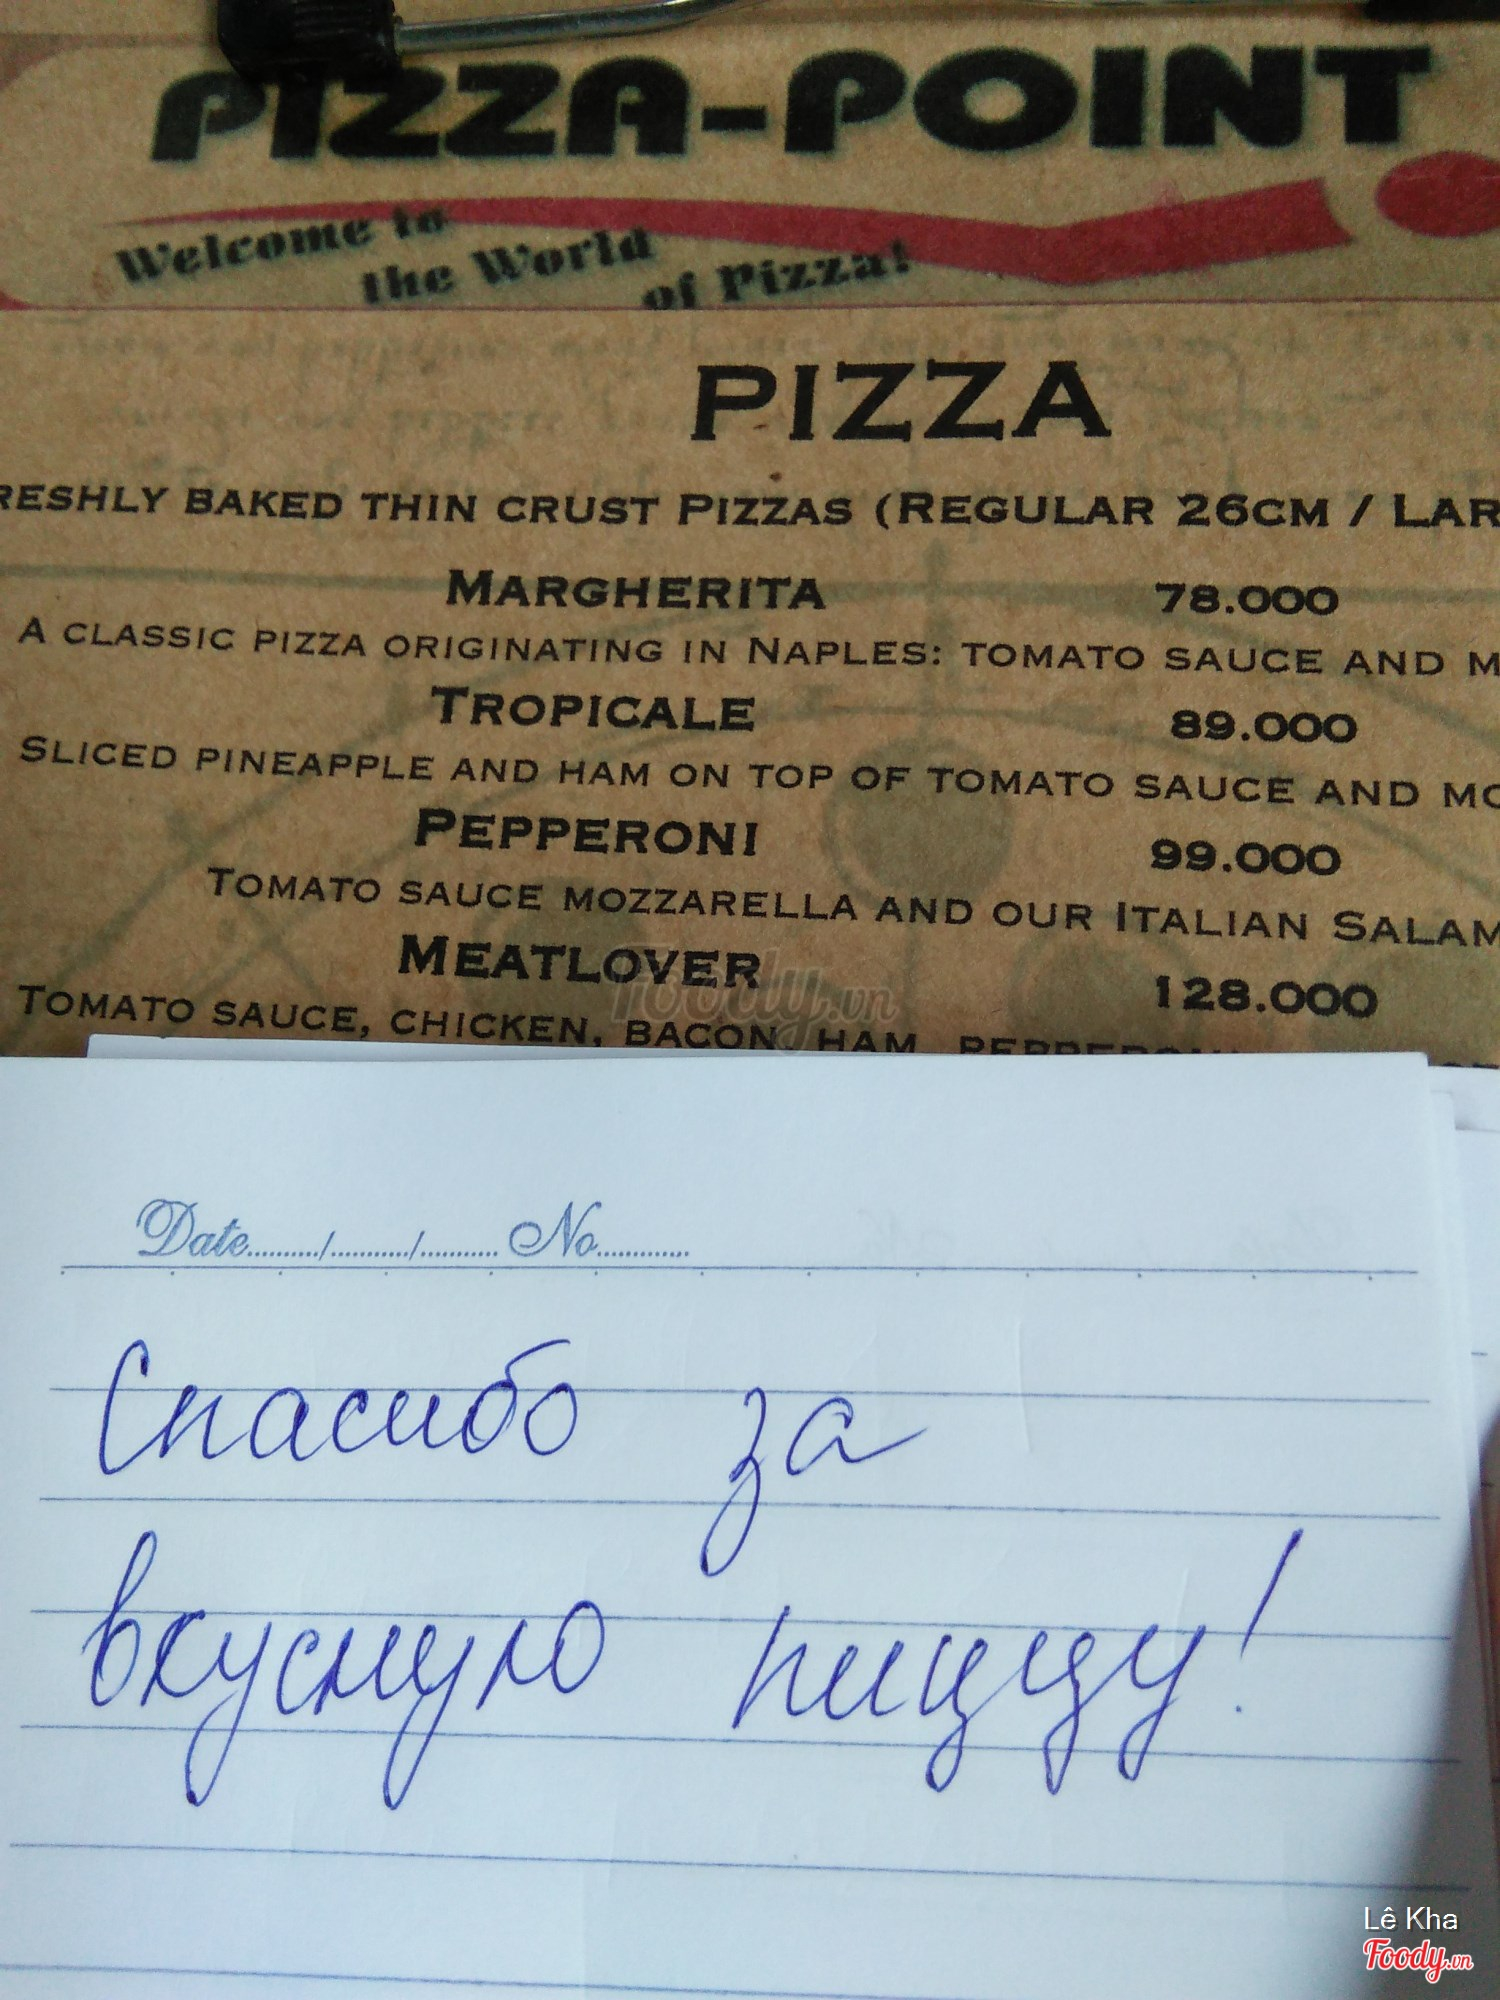 PIZZA-POINT
Welcome to
the World
of Pizza!
PIZZA
RESHLY BAKED THIN CRUST PIZZAS (REGULAR 26CM / LAR
MARGHERITA 78.000
A CLASSIC PIZZA ORIGINATING IN NAPLES: TOMATO SAUCE AND M
TROPICALE 89.000
SLICED PINEAPPLE AND HAM ON TOP OF TOMATO SAUCE AND MO
PEPPERONI 99.000
TOMATO SAUCE MOZZARELLA AND OUR ITALIAN SALAM
MEATLOVER 128.000
TOMATO SAUCE, CHICKEN, BACON, HAM, PEPPERONI
Foody.vn
Date........../.........../........... No.............
Спасибо за
вкусную пиццу!
Lê Kha
Foody.vn